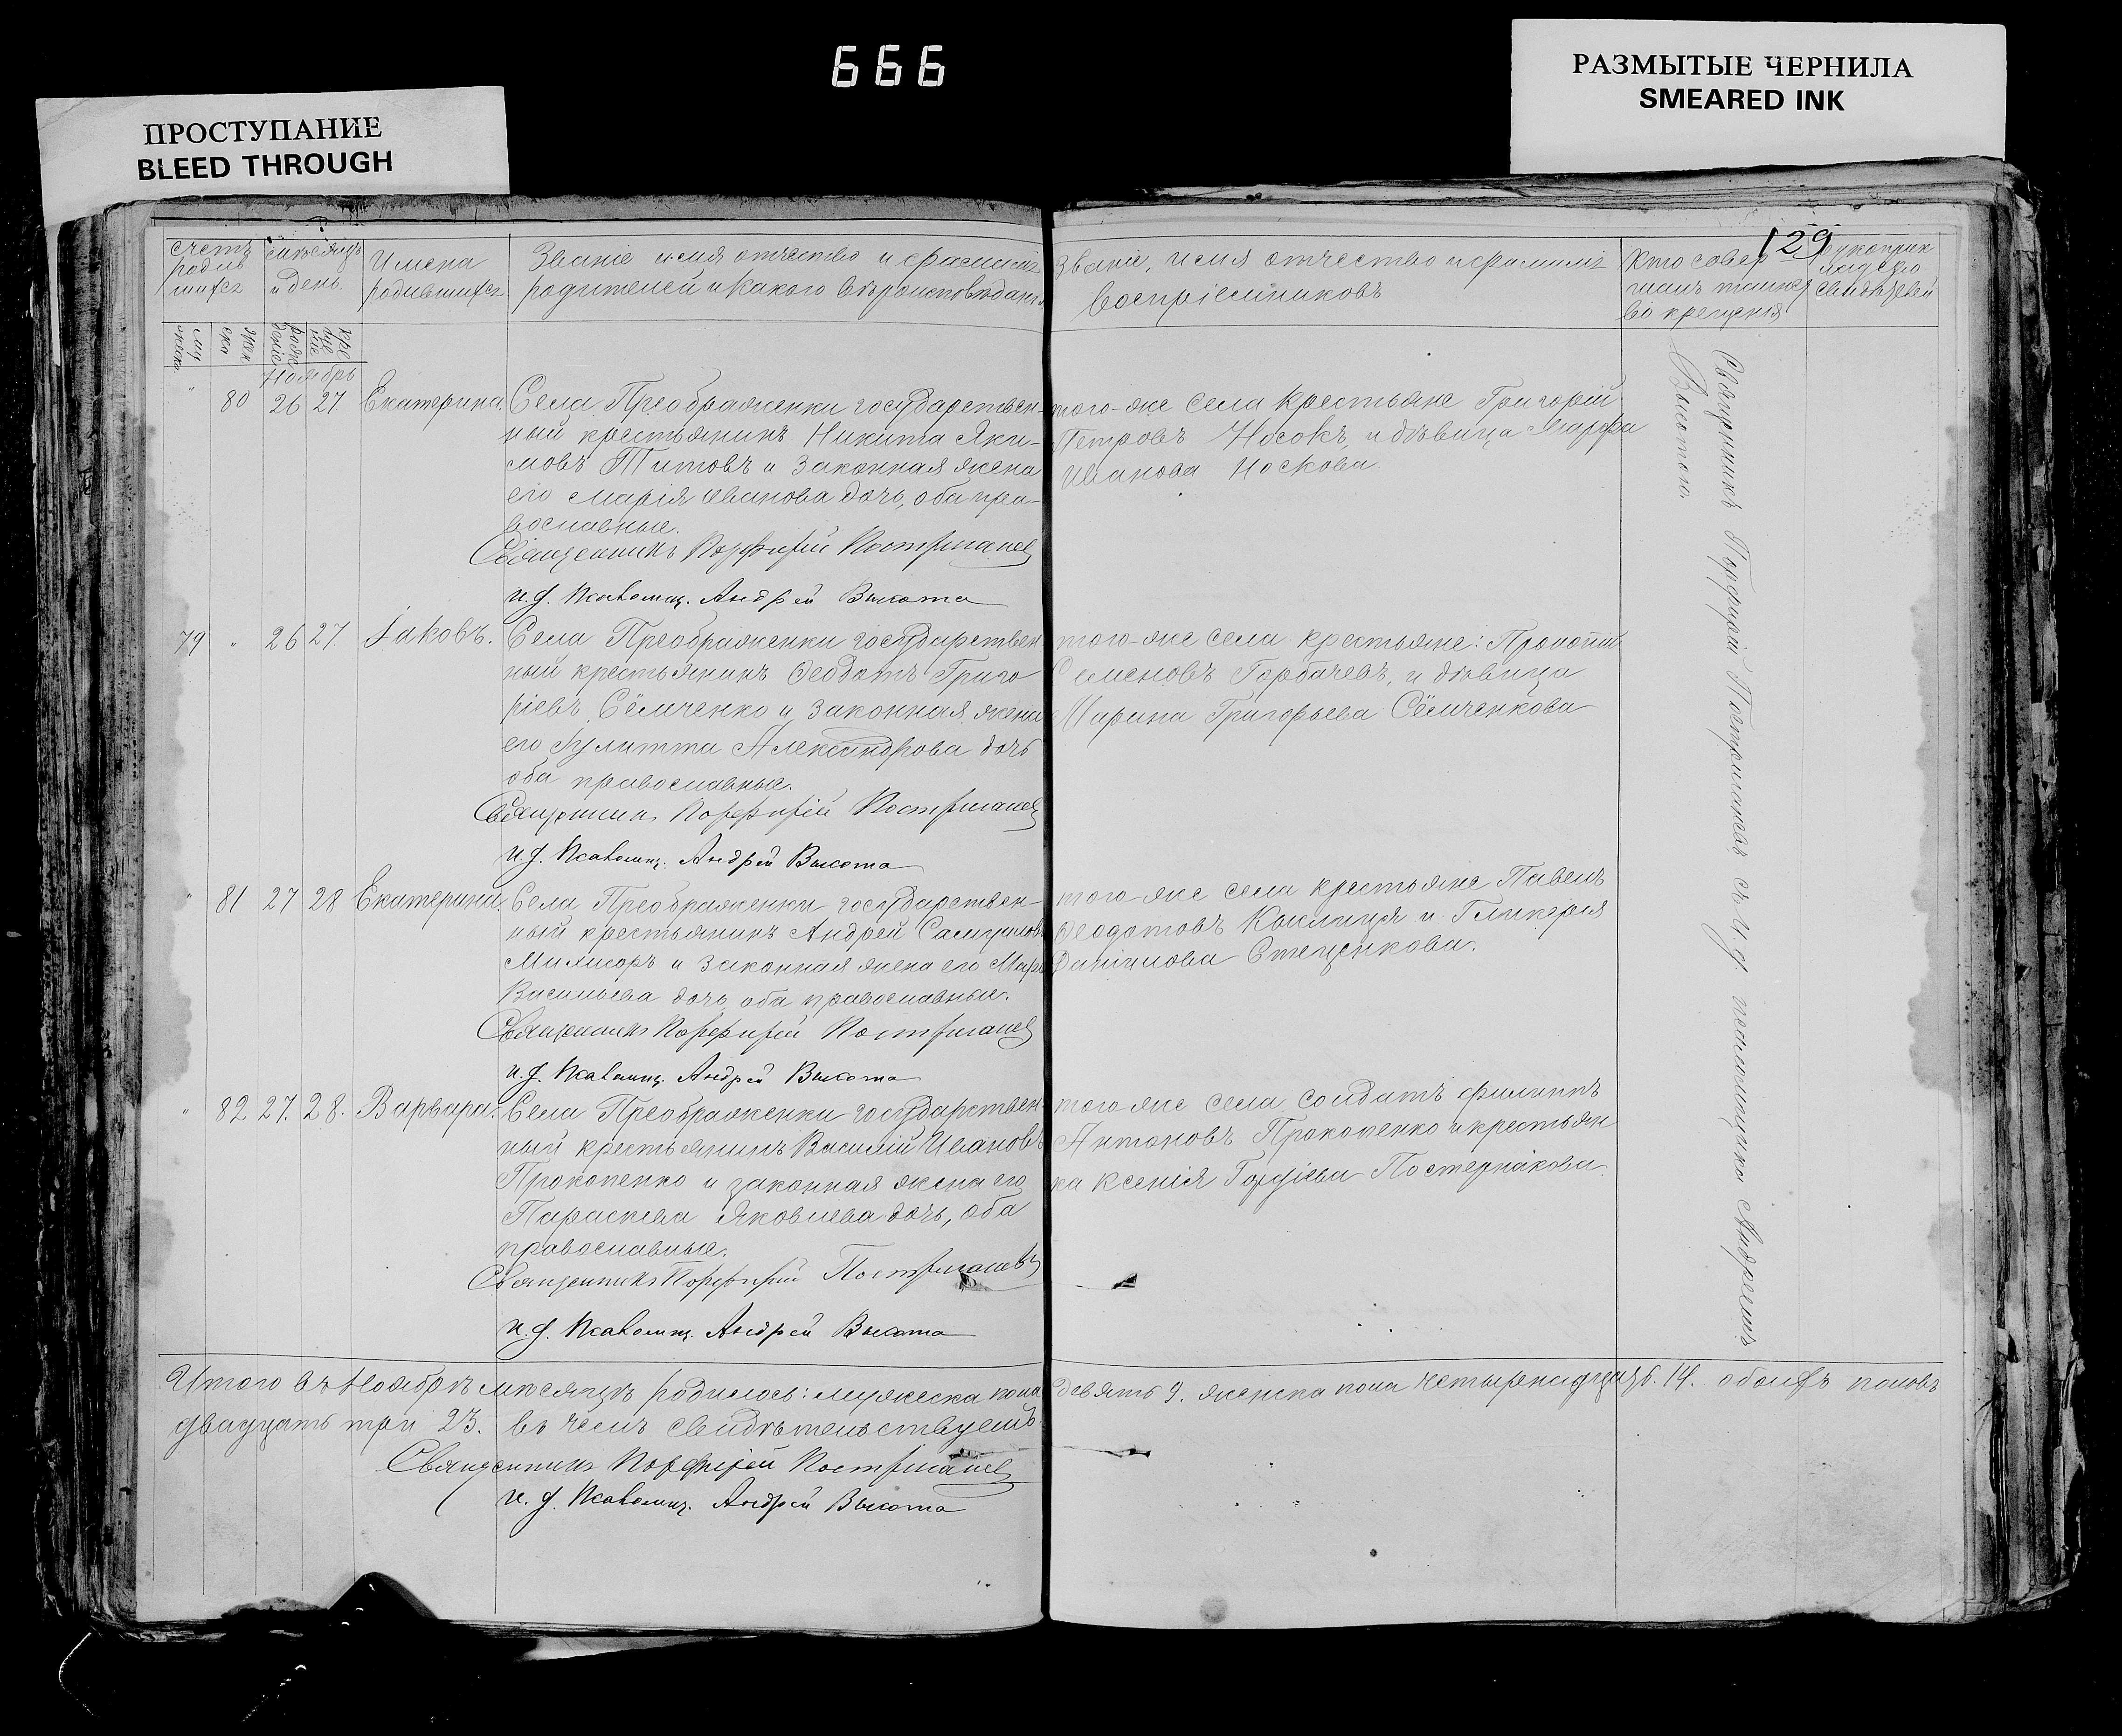 666
РАЗМЫТЫЕ ЧЕРНИЛА
SMEARED INK
ПРОСТУПАНИЕ
BLEED THROUGH
129
счетъ родив шихся
мѣсяцъ и день
Имена родившихся
Званіе имя отчество и фамилія
родителей и какого вѣроисповѣданія
Званіе, имя отчество и фамилія
воспріемниковъ
Кто совер
шалъ таинст
во крещенія
рукоприк
ладство
свидѣтелей
муж жен
рожденіе
кре ще ніе
Ноябрь
" 80 26 27 Екатерина.
Села Преображенки государствен-
ный крестьянинъ Никита Яки-
мовъ Титовъ и законная жена
его Марія Иванова дочь, оба пра-
вославные.
Священникъ Порфирій
и. д. Псаломщ. Андрей Высота
того-же села крестьяне Григорій
Петровъ Носокъ и дѣвица Марфа
Иванова Носкова.
79 " 26 27. Іаковъ.
Села Преображенки государствен
ный крестьянинъ Ѳеодотъ Григо
ріевъ Сёмченко и законная жена
его Іулитта Александрова дочь
оба православные.
Священникъ Порфирій
и. д. Псаломщ. Андрей Высота
того-же села крестьяне: Прокопій
Семеновъ Горбачевъ, и дѣвица
Марина Григорьева Сёмченкова
" 81 27 28 Екатерина.
Села Преображенки государствен-
ный крестьянинъ Андрей Самуилов
и законная жена его
Васильева дочь оба православные.
Священникъ Порфирій
и. д. Псаломщ. Андрей Высота
того-же села крестьяне Павелъ
Ѳеодотовъ и Гликерія
Даніилова Стеценкова.
" 82 27. 28. Варвара.
Села Преображенки государствен
ный крестьянинъ Василій Ивановъ
Прокопенко и законная жена его
Параскева Яковлева дочь, оба
православные.
Священникъ Порфирій
и. д. Псаломщ. Андрей Высота
того же села солдатъ Филиппъ
Антоновъ Прокопенко и крестьян
ка Ксенія Постернакова.
Священникъ Порфирій съ и. д. псаломщика Андреемъ
Высотою.
Итого въ Ноябрѣ мѣсяцѣ родилось: мужеска пола девять 9. женска пола четырнадцать. 14. обоихъ половъ
двадцать три 23. въ чемъ свидѣтельствуемъ
Священникъ Порфирій
и. д. Псаломщ. Андрей Высота